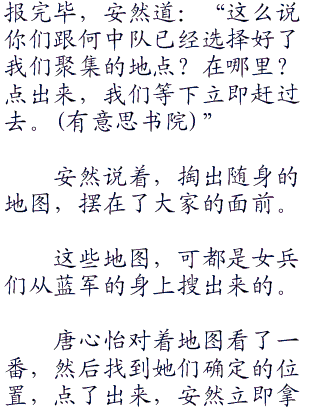 报完毕，安然道：“这么说
你们跟何中队已经选择好了
我们聚集的地点？在哪里？
点出来，我们等下立即赶过
去。(有意思书院)”
安然说着，掏出随身的
地图，摆在了大家的面前。
这些地图，可都是女兵
们从蓝军的身上搜出来的。
唐心怡对着地图看了一
番，然后找到她们确定的位
置，点了出来，安然立即拿